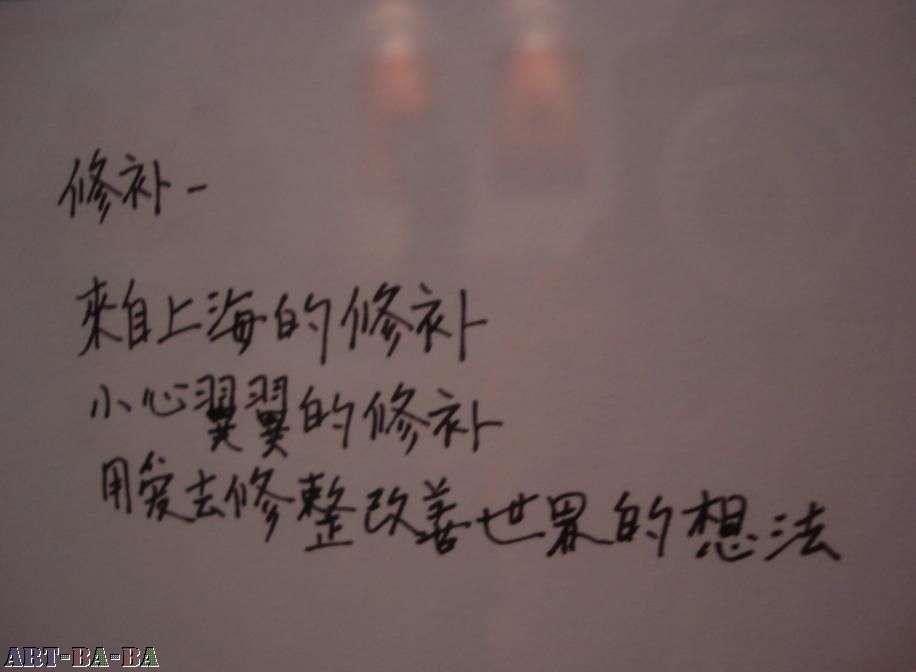 修补-
來自上海的修补
小心翼翼的修补
用爱去修整改善世界的想法
ART-BA-BA